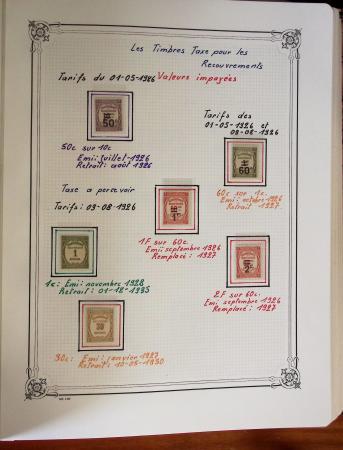 Les Timbres Taxe pour les
Recouvrements
Tarifs du 01-05-1926 Valeurs impayées
Tarifs des
01-05-1926 et
09-08-1926
50c
60c
50c sur 10c
Emi: juillet-1926
Retrait: août 1926
60c sur 1c
Emi: octobre 1926
Retrait: 1927
Taxe a percevoir
Tarifs: 09-08-1926
1F
1F sur 60c.
Emi: septembre 1926
Remplacé: 1927
1
2F
1c: Emi: novembre 1928
Retrait: 01-12-1935
2F sur 60c.
Emi: septembre 1926
Remplacé: 1927
30
30c: Emi: janvier 1927
Retrait: 10-05-1930